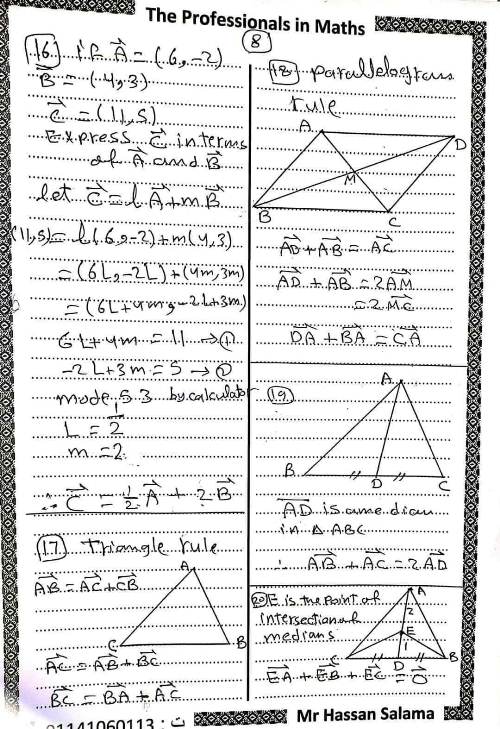 The Professionals in Maths
8
16) if A⃗ = (6, -2)
B⃗ = (4, 3)
C⃗ = (11, 5)
Express C⃗ in terms
of A⃗ and B⃗
let C⃗ = L A⃗ + m B⃗
(11,5) = L(6, -2) + m(4, 3)
= (6L, -2L) + (4m, 3m)
= (6L+4m, -2L+3m)
6L+4m = 11 → ①
-2L+3m = 5 → ②
mode 5 3 by calculator
L = 1/2
m = 2
∴ C⃗ = 1/2 A⃗ + 2 B⃗
17) triangle rule
A
AB⃗ = AC⃗ + CB⃗
C B
AC⃗ = AB⃗ + BC⃗
BC⃗ = BA⃗ + AC⃗
18) parallelogram
rule
A
D
M
B
C
AD⃗ + AB⃗ = AC⃗
AD⃗ + AB⃗ = 2AM⃗
= 2MC⃗
DA⃗ + BA⃗ = CA⃗
19)
A
B D C
AD is a median
in Δ ABC
∴ AB⃗ + AC⃗ = 2AD⃗
20) E is the point of
intersection of
medians
A
2
E
1
C D B
EA⃗ + EB⃗ + EC⃗ = O⃗
01141060113 : ت
Mr Hassan Salama